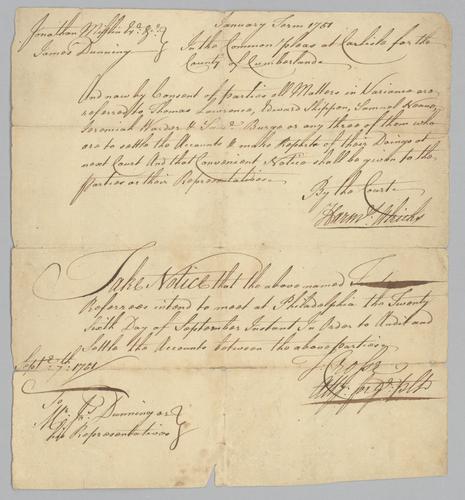 January Term 1751
Jonathan Mifflin
James Dunning
In the Common Pleas at Carlisle for the
County of Cumberlande
And now by Consent of parties all Matters in Variance are
referred to Thomas Lawrence, Edward Shippen, Samuel
Jeremiah Warder & Burge or any three of them who
are to settle the Accounts & make Reports of their Doings at
next Court And that Convenient Notice shall be given to the
parties or their Representatives
By the Court
Take Notice that the above named
Referrees intend to meet at Philadelphia the Twenty
Sixth Day of September Instant In Order to Audit and
Settle the Accounts between the above parties
Sept 7th 1751
J Ross
Atty for ye plts
To
Mr Jas Dunning or
his Representatives